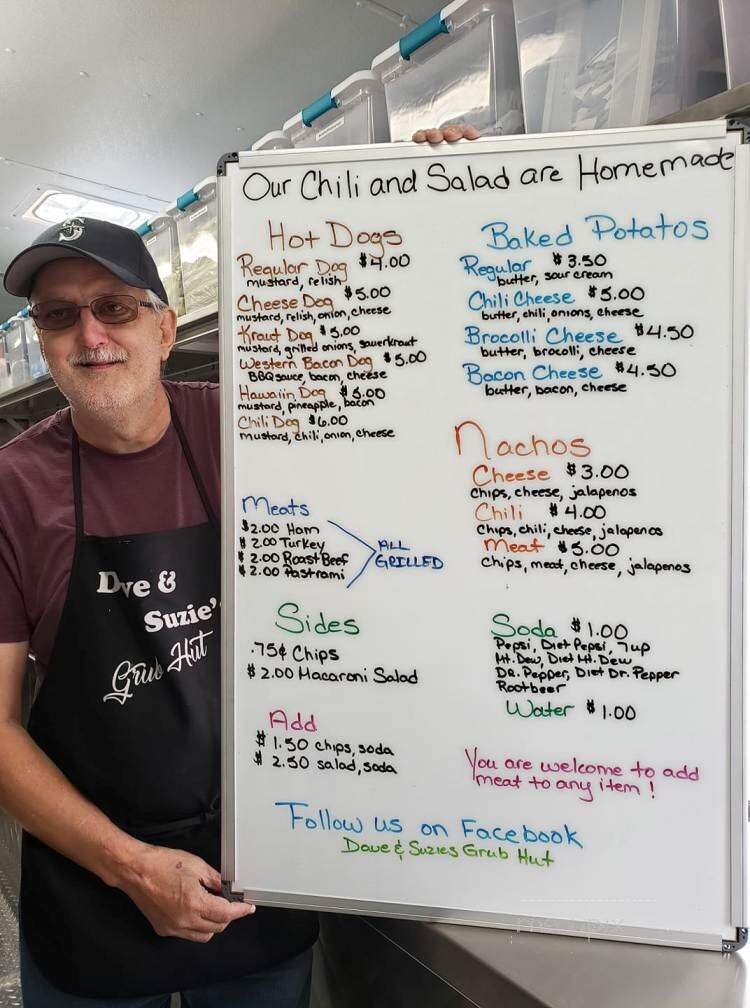 Our Chili and Salad are Homemade
Hot Dogs
Regular Dog $4.00
mustard, relish
Cheese Dog $5.00
mustard, relish, onion, cheese
Kraut Dog $5.00
mustard, grilled onions, sauerkraut
Western Bacon Dog $5.00
BBQ sauce, bacon, cheese
Hawaiin Dog $5.00
mustard, pineapple, bacon
Chili Dog $6.00
mustard, chili, onion, cheese
Meats
$2.00 Ham
$2.00 Turkey
$2.00 Roast Beef
$2.00 Pastrami
ALL
GRILLED
Sides
.75¢ Chips
$2.00 Macaroni Salad
Add
$1.50 chips, soda
$2.50 salad, soda
Baked Potatos
Regular $3.50
butter, sour cream
Chili Cheese $5.00
butter, chili, onions, cheese
Brocolli Cheese $4.50
butter, brocolli, cheese
Bacon Cheese $4.50
butter, bacon, cheese
Nachos
Cheese $3.00
chips, cheese, jalapenos
Chili $4.00
chips, chili, cheese, jalapenos
Meat $5.00
chips, meat, cheese, jalapenos
Soda $1.00
Pepsi, Diet Pepsi, 7up
Mt. Dew, Diet Mt. Dew
DR. Pepper, Diet Dr. Pepper
Rootbeer
Water $1.00
You are welcome to add
meat to any item!
Follow us on Facebook
Dave & Suzies Grub Hut
Dave &
Suzie's
Grub Hut
S